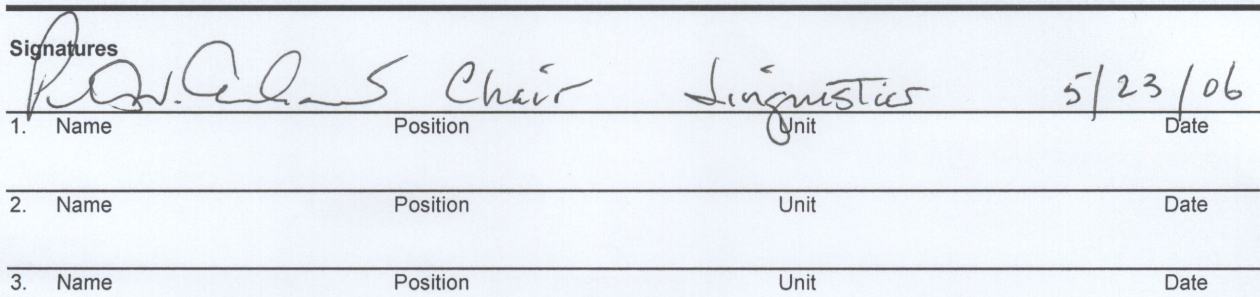 Signatures
Chair Linguistics 5/23/06
1. Name Position Unit Date
2. Name Position Unit Date
3. Name Position Unit Date